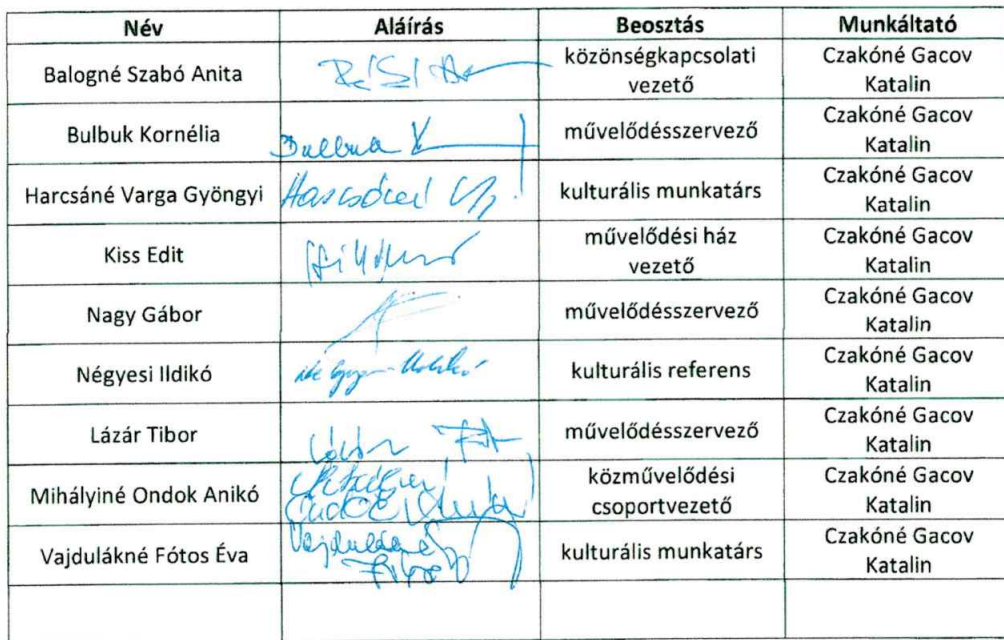 Név Aláírás Beosztás Munkáltató
Balogné Szabó Anita közönségkapcsolati vezető Czakóné Gacov Katalin
Bulbuk Kornélia Bulbuk K művelődésszervező Czakóné Gacov Katalin
Harcsáné Varga Gyöngyi kulturális munkatárs Czakóné Gacov Katalin
Kiss Edit művelődési ház vezető Czakóné Gacov Katalin
Nagy Gábor művelődésszervező Czakóné Gacov Katalin
Négyesi Ildikó kulturális referens Czakóné Gacov Katalin
Lázár Tibor művelődésszervező Czakóné Gacov Katalin
Mihályiné Ondok Anikó közművelődési csoportvezető Czakóné Gacov Katalin
Vajdulákné Fótos Éva Vajdulákné kulturális munkatárs Czakóné Gacov Katalin